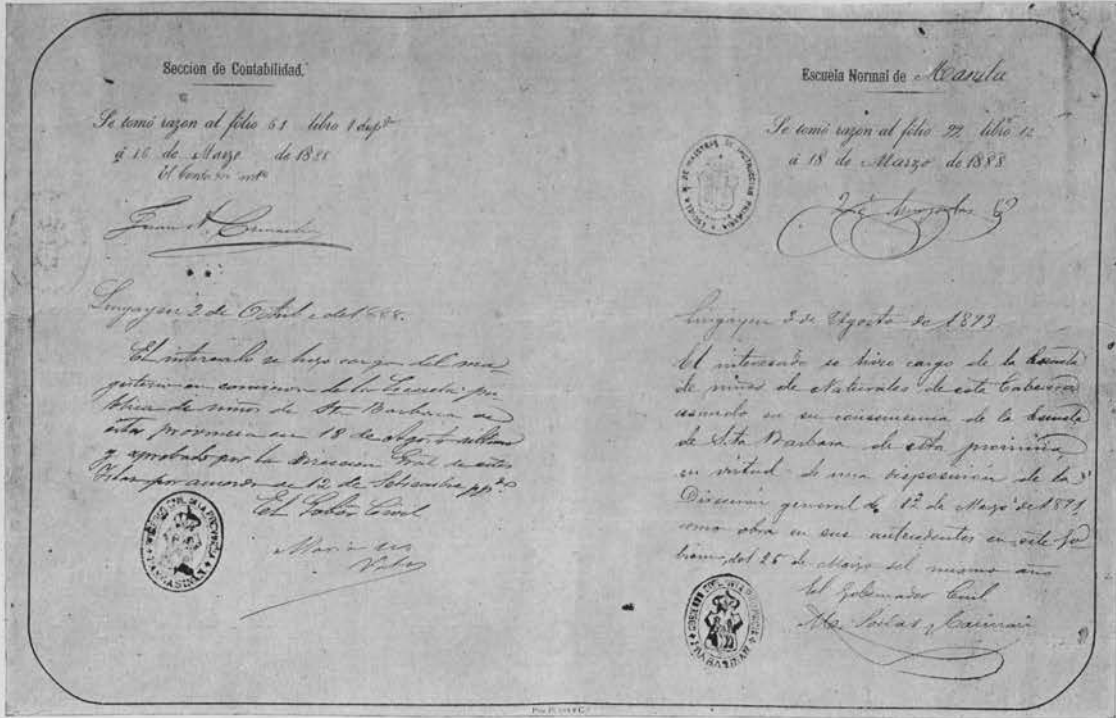 Seccion de Contabilidad.
Se tomó razon al fólio 61 libro 1 dupdo
á 16 de Marzo de 1888
El Contador
Lingayen 2 de Octubre de 1888.
El interesado se hizo cargo del ma
gisterio en comision de la Escuela pu
blica de niños de Sta. Barbara en
esta provincia en 18 de Agosto ultimo
y aprobado por la Direccion Gral de estas
Islas por acuerdo de 12 de Setiembre pp.do
El Gobor Civil
GOBIERNO CIVIL DE LA PROVINCIA
PANGASINAN
Escuela Normal de Manila
Se tomó razon al fólio 22 libro 12
á 18 de Marzo de 1888
ESCUELA N. DE MAESTROS DE INSTRUCCION PRIMARIA
Lingayen 3 de Agosto de 1893
El interesado se hizo cargo de la Escuela
de niños de Naturales de esta Cabecera
cesando en su consecuencia de la Escuela
de Sta Barbara de esta provincia
en virtud de una disposición de la
Dirección general de 12 de Mayo de 1891
como obra en sus antecedentes en este Go
bierno, del 25 de Mayo del mismo año
El Gobernador Civil
GOBIERNO CIVIL DE LA PROVINCIA
PANGASINAN